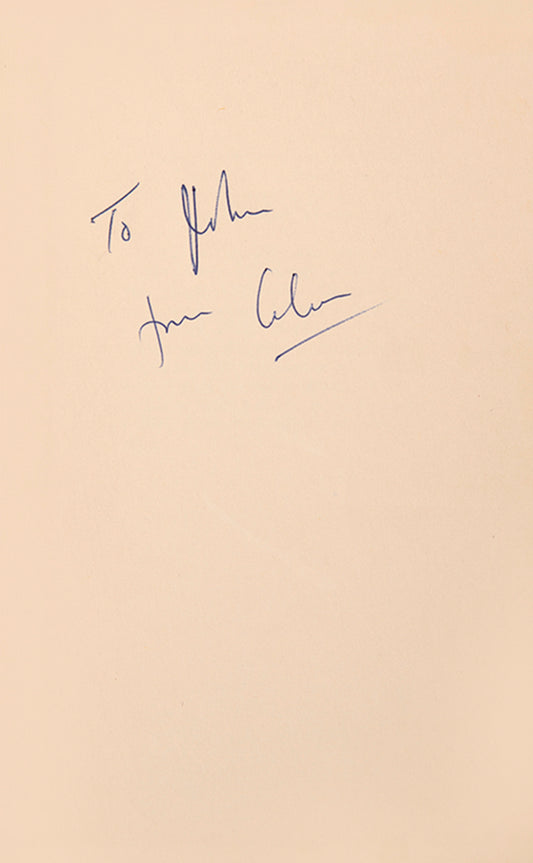 To John
from Colin